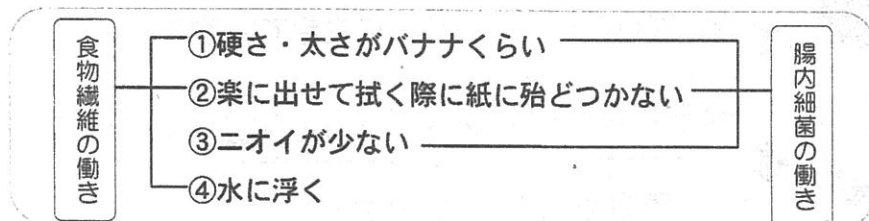 食物繊維の働き
①硬さ・太さがバナナくらい
②楽に出せて拭く際に紙に殆どつかない
③ニオイが少ない
④水に浮く
腸内細菌の働き